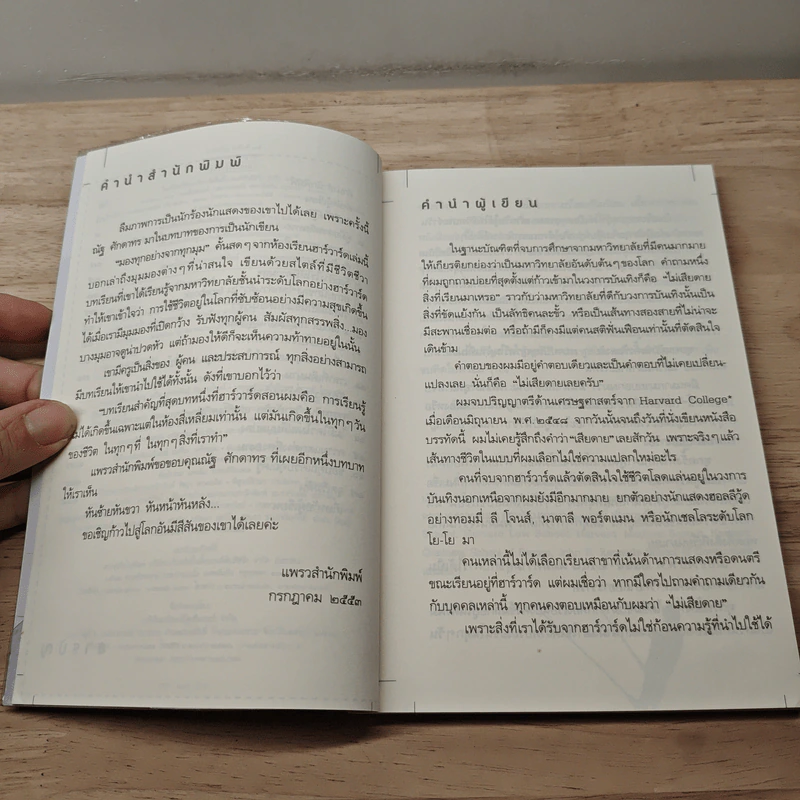 คำนำสำนักพิมพ์
ลืมภาพการเป็นนักร้องนักแสดงของเขาไปได้เลย เพราะครั้งนี้
ณัฐ ศักดาทร มาในบทบาทของการเป็นนักเขียน
"มองทุกอย่างจากทุกมุม" คั้นสดๆ จากห้องเรียนฮาร์วาร์ดเล่มนี้
บอกเล่าถึงมุมมองต่างๆ ที่น่าสนใจ เขียนด้วยสไตล์ที่มีชีวิตชีวา
บทเรียนที่เขาได้เรียนรู้จากมหาวิทยาลัยชั้นนำระดับโลกอย่างฮาร์วาร์ด
ทำให้เขาเข้าใจว่า การใช้ชีวิตอยู่ในโลกที่ซับซ้อนอย่างมีความสุขเกิดขึ้น
ได้เมื่อเรามีมุมมองที่เปิดกว้าง รับฟังทุกผู้คน สัมผัสทุกสรรพสิ่ง...มอง
บางมุมอาจดูน่าปวดหัว แต่ถ้ามองให้ดีก็จะเห็นความท้าทายอยู่ในนั้น
เขามีครูเป็นสิ่งของ ผู้คน และประสบการณ์ ทุกสิ่งอย่างสามารถ
มีบทเรียนให้เขานำไปใช้ได้ทั้งนั้น ดังที่เขาบอกไว้ว่า
"บทเรียนสำคัญที่สุดบทหนึ่งที่ฮาร์วาร์ดสอนผมคือ การเรียนรู้
ไม่ได้เกิดขึ้นเฉพาะแต่ในห้องสี่เหลี่ยมเท่านั้น แต่มันเกิดขึ้นในทุกๆ วัน
ของชีวิต ในทุกๆ ที่ ในทุกๆ สิ่งที่เราทำ"
แพรวสำนักพิมพ์ขอขอบคุณณัฐ ศักดาทร ที่เผยอีกหนึ่งบทบาท
ให้เราเห็น
หันซ้ายหันขวา หันหน้าหันหลัง...
ขอเชิญก้าวไปสู่โลกอันมีสีสันของเขาได้เลยค่ะ
แพรวสำนักพิมพ์
กรกฎาคม ๒๕๕๓
คำนำผู้เขียน
ในฐานะบัณฑิตที่จบการศึกษาจากมหาวิทยาลัยที่มีคนมากมาย
ให้เกียรติยกย่องว่าเป็นมหาวิทยาลัยอันดับต้นๆ ของโลก คำถามหนึ่ง
ที่ผมถูกถามบ่อยที่สุดตั้งแต่ก้าวเข้ามาในวงการบันเทิงก็คือ "ไม่เสียดาย
สิ่งที่เรียนมาเหรอ" ราวกับว่ามหาวิทยาลัยที่ดีกับวงการบันเทิงนั้นเป็น
สิ่งที่ขัดแย้งกัน เป็นลัทธิคนละขั้ว หรือเป็นเส้นทางสองสายที่ไม่น่าจะ
มีสะพานเชื่อมต่อ หรือถ้ามีก็คงมีแต่คนสติฟั่นเฟือนเท่านั้นที่ตัดสินใจ
เดินข้าม
คำตอบของผมมีอยู่คำตอบเดียวและเป็นคำตอบที่ไม่เคยเปลี่ยน-
แปลงเลย นั่นก็คือ "ไม่เสียดายเลยครับ"
ผมจบปริญญาตรีด้านเศรษฐศาสตร์จาก Harvard College*
เมื่อเดือนมิถุนายน พ.ศ. ๒๕๔๘ จากวันนั้นจนถึงวันที่นั่งเขียนหนังสือ
บรรทัดนี้ ผมไม่เคยรู้สึกถึงคำว่า "เสียดาย" เลยสักวัน เพราะจริงๆ แล้ว
เส้นทางชีวิตในแบบที่ผมเลือกไม่ใช่ความแปลกใหม่อะไร
คนที่จบจากฮาร์วาร์ดแล้วตัดสินใจใช้ชีวิตโลดแล่นอยู่ในวงการ
บันเทิงนอกเหนือจากผมยังมีอีกมากมาย ยกตัวอย่างนักแสดงฮอลลีวู้ด
อย่างทอมมี่ ลี โจนส์, นาตาลี พอร์ตแมน หรือนักเชลโลระดับโลก
โย-โย มา
คนเหล่านี้ไม่ได้เลือกเรียนสาขาที่เน้นด้านการแสดงหรือดนตรี
ขณะเรียนอยู่ที่ฮาร์วาร์ด แต่ผมเชื่อว่า หากมีใครไปถามคำถามเดียวกัน
กับบุคคลเหล่านี้ ทุกคนคงตอบเหมือนกับผมว่า "ไม่เสียดาย"
เพราะสิ่งที่เราได้รับจากฮาร์วาร์ดไม่ใช่ก้อนความรู้ที่นำไปใช้ได้